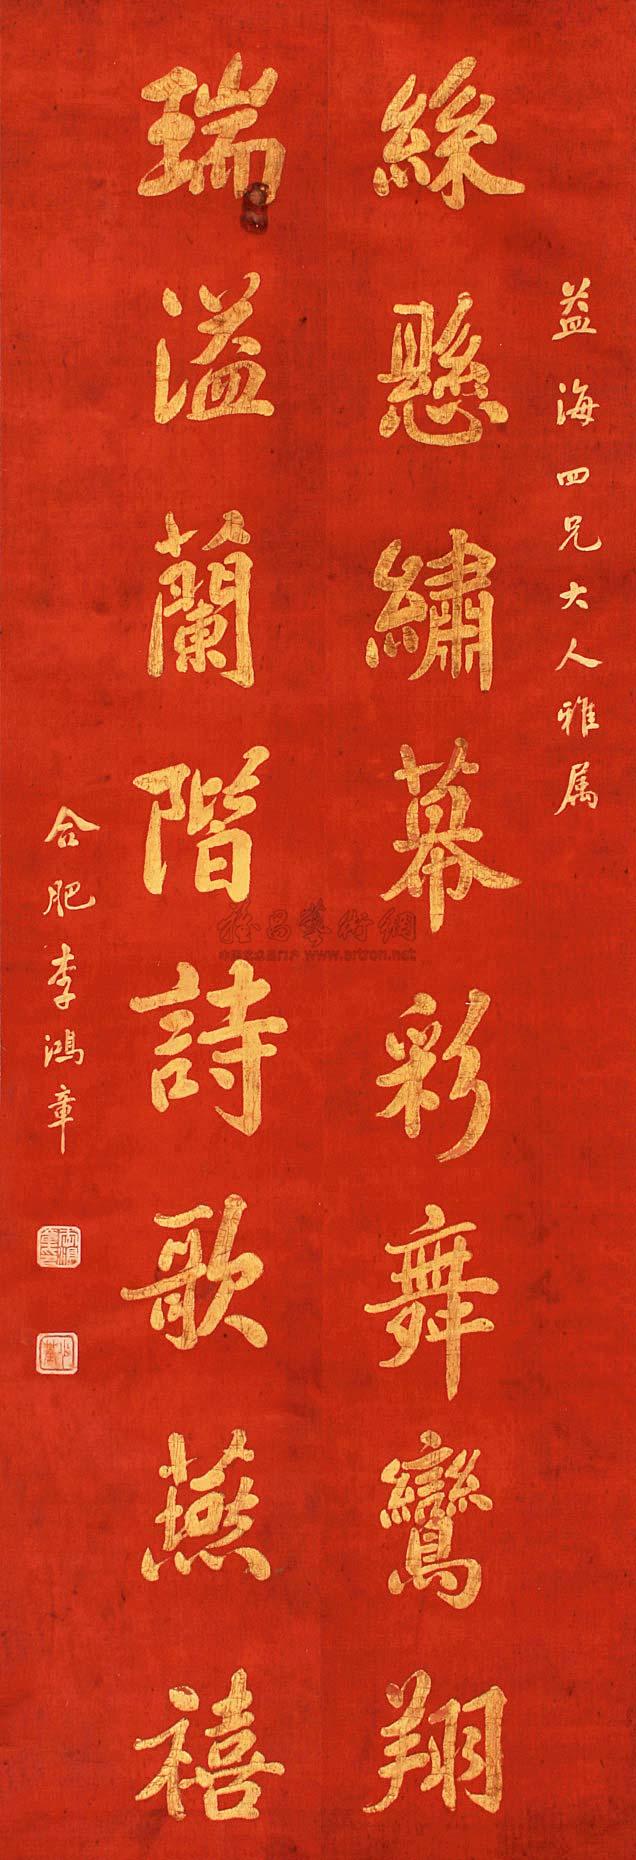 益海四兄大人雅属
絲懸繡幕彩舞鸞翔
瑞溢蘭階詩歌燕禧
合肥李鴻章
雅昌藝術網
www.artron.net